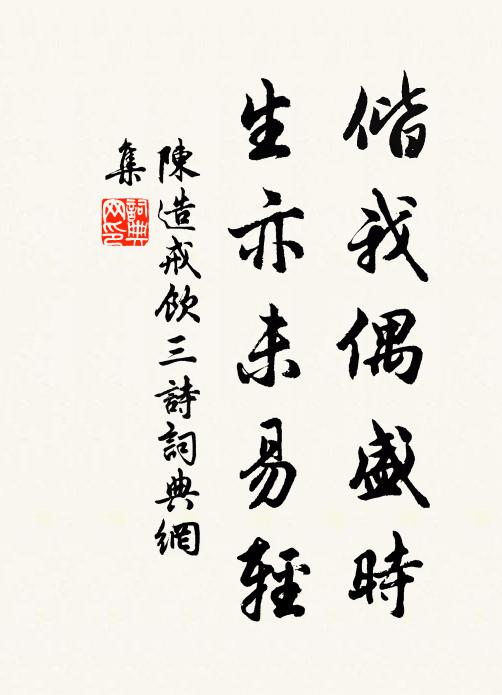 偕我偶盛時
生亦未易輕
陳造戒飲三詩詞典網
集
詞典網印